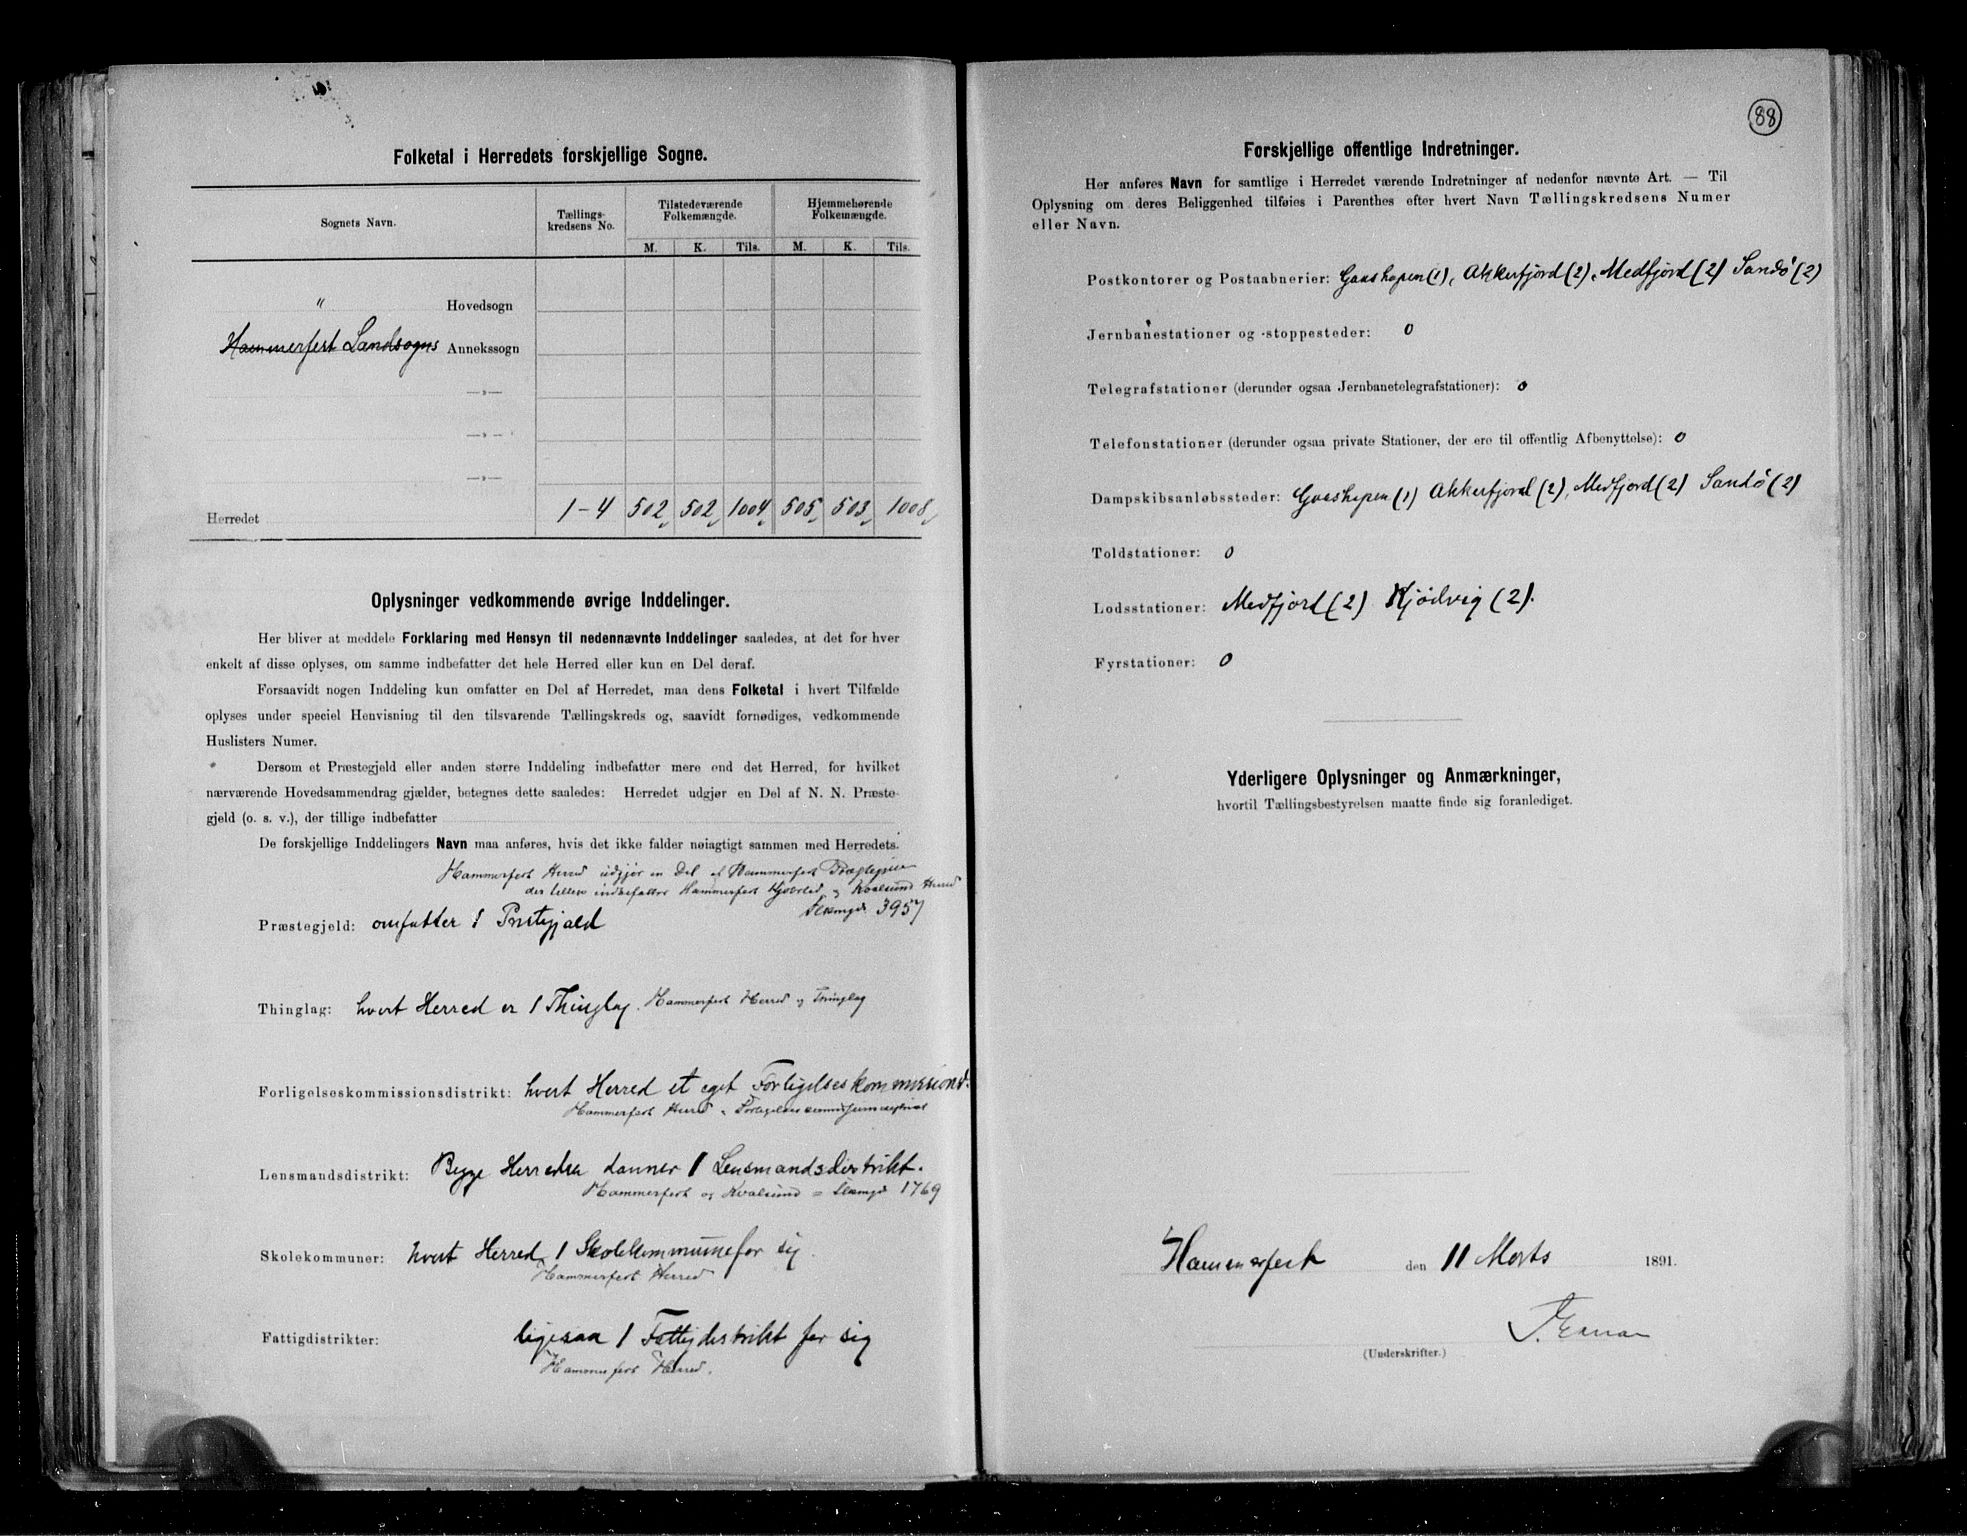 Folketal i Herredets forskjellige Sogne.
Sognets Navn.
Tællings-
kredsens No.
Tilstedeværende
Folkemængde.
Hjemmehørende
Folkemængde.
M. K. Tils. M. K. Tils.
" Hovedsogn
Hammerfest Landsogns Annekssogn
—»—
—»—
—»—
Herredet 1-4 502 502 1004 505 503 1008
Oplysninger vedkommende øvrige Inddelinger.
Her bliver at meddele Forklaring med Hensyn til nedennævnte Inddelinger saaledes, at det for hver
enkelt af disse oplyses, om samme indbefatter det hele Herred eller kun en Del deraf.
Forsaavidt nogen Inddeling kun omfatter en Del af Herredet, maa dens Folketal i hvert Tilfælde
oplyses under speciel Henvisning til den tilsvarende Tællingskreds og, saavidt fornødiges, vedkommende
Huslisters Numer.
Dersom et Præstegjeld eller anden større Inddeling indbefatter mere end det Herred, for hvilket
nærværende Hovedsammendrag gjælder, betegnes dette saaledes: Herredet udgjør en Del af N. N. Præste-
gjeld (o. s. v.), der tillige indbefatter
De forskjellige Inddelingers Navn maa anføres, hvis det ikke falder nøiagtigt sammen med Herredets.
Hammerfest Herred udgjør en Del af Hammerfest
der tillige indbefatter Hammerfest Kjøbsted og Kvalsund Herred
3957
Præstegjeld: omfatter 1 Prestegjæld
Thinglag: hvert Herred er 1 Thinglag. Hammerfest Herred og Thinglag
Forligelseskommissionsdistrikt: hvert Herred et eget Forligelseskommissionsd.
Hammerfest Herred
Lensmandsdistrikt: Begge Herreder danner 1 Lensmandsdistrikt.
Hammerfest og Kvalsund = 1769
Skolekommuner: hvert Herred 1 Skolekommune for sig.
Hammerfest Herred
Fattigdistrikter: ligesaa 1 Fattigdistrikt for sig
Hammerfest Herred.
88
Forskjellige offentlige Indretninger.
Her anføres Navn for samtlige i Herredet værende Indretninger af nedenfor nævnte Art. — Til
Oplysning om deres Beliggenhed tilføies i Parenthes efter hvert Navn Tællingskredsens Numer
eller Navn.
Postkontorer og Postaabnerier: Gaashopen (1), Akkerfjord (2), Medfjord (2) Sandø (2)
Jernbanestationer og -stoppesteder: 0
Telegrafstationer (derunder ogsaa Jernbanetelegrafstationer): 0
Telefonstationer (derunder ogsaa private Stationer, der ere til offentlig Afbenyttelse): 0
Dampskibsanløbssteder: Gaashopen (1) Akkerfjord (2), Medfjord (2) Sandø (2)
Toldstationer: 0
Lodsstationer: Medfjord (2) Kjødvig (2).
Fyrstationer: 0
Yderligere Oplysninger og Anmærkninger,
hvortil Tællingsbestyrelsen maatte finde sig foranlediget.
Hammerfest den 11 Marts 1891.
(Underskrifter.)